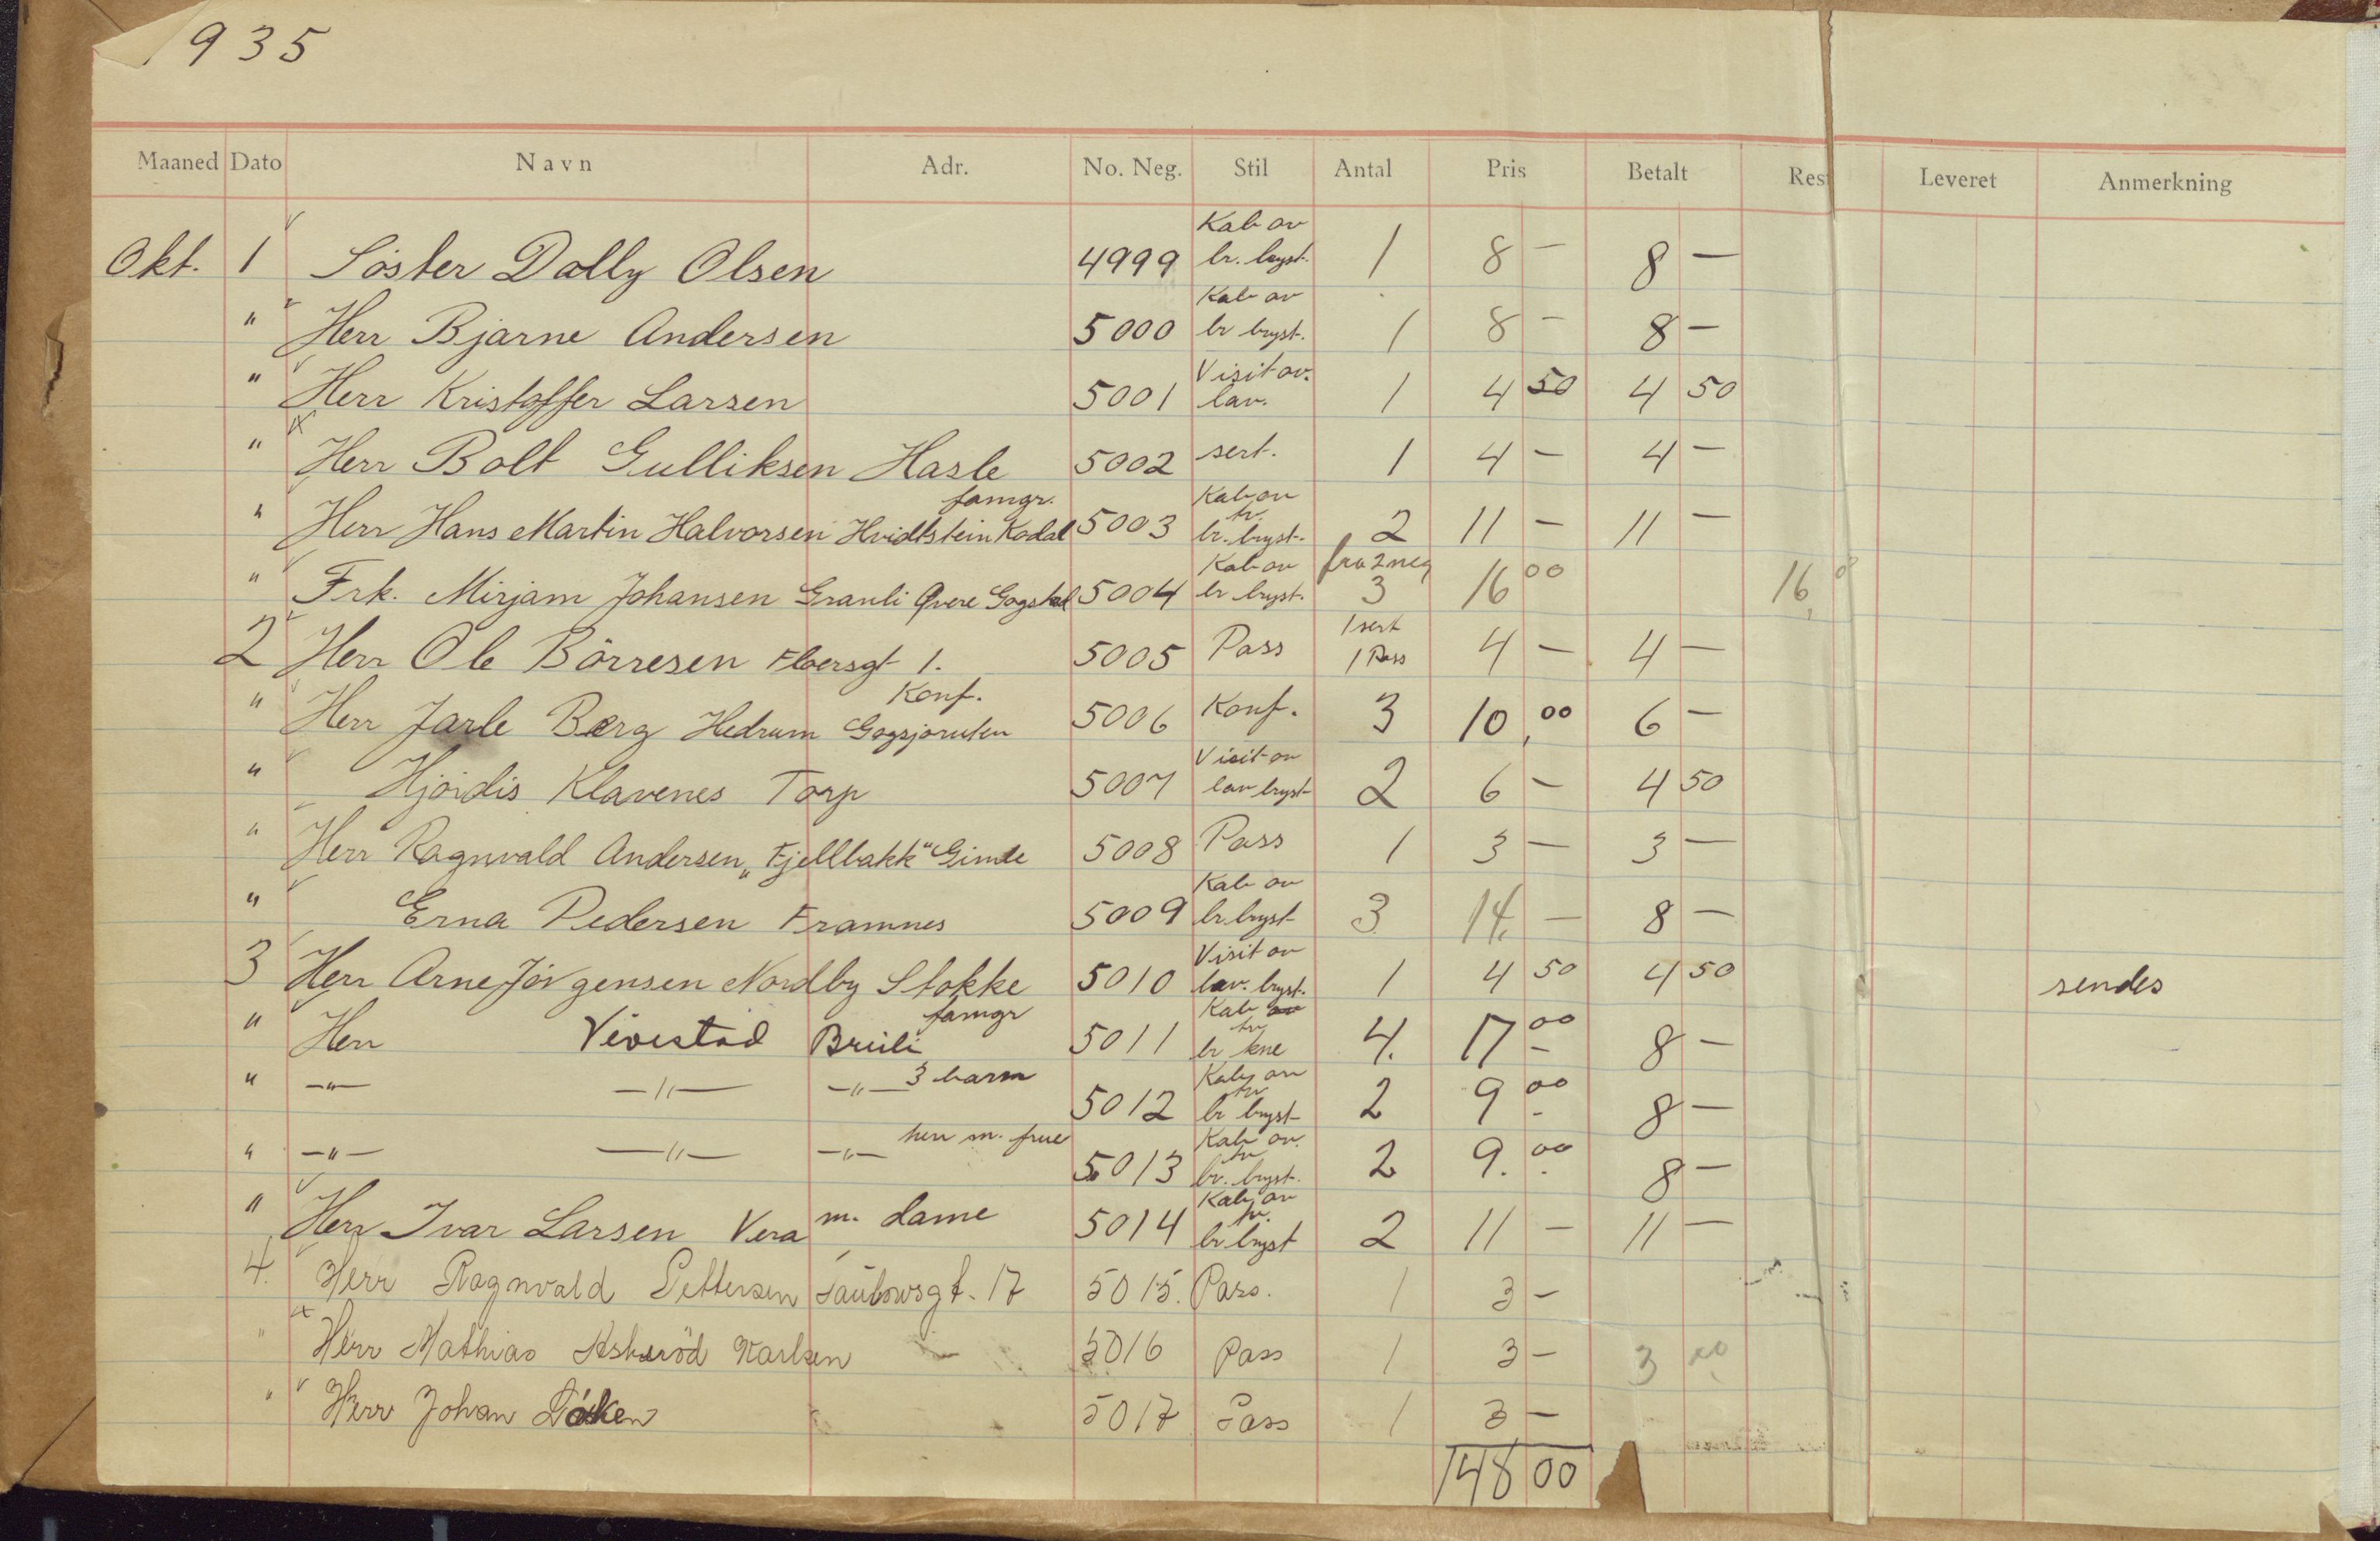 1935
Maaned Dato Navn Adr. No. Neg. Stil Antal Pris Betalt Rest Leveret Anmerkning
Okt. 1 Söster Dolly Olsen 4999 Kab av br. bryst. 1 8 – 8 –
" Herr Bjarne Andersen 5000 Kab av br bryst. 1 8 – 8 –
" Herr Kristoffer Larsen 5001 Visit av. lav. 1 4 50 4 50
" Herr Bolt Gulliksen Hasle 5002 sert. 1 4 – 4 –
" Herr Hans Martin Halvorsen Hvidtstein Kodal famgr. 5003 Kab av tv. br. bryst. 2 11 – 11 –
" Frk. Mirjam Johansen Granli Övere Gogstad 5004 Kab av br bryst. fra 2 neg 3 16 00 16
2 Herr Ole Börresen Floersgt 1. 5005 Pass 1 sert 1 Pass 4 – 4 –
" Herr Jarle Berg Hedrum Gogsjoruten Konf. 5006 Konf. 3 10,00 6 –
" Hjördis Klavenes Torp 5007 Visit av lav bryst 2 6 – 4 50
" Herr Ragnvald Andersen "Fjellbakk" Gimle 5008 Pass 1 3 – 3 –
" Erna Pedersen Framnes 5009 Kab av br. bryst 3 14, – 8 –
3 Herr Arne Jörgensen Nordby Stokke 5010 Visit av lav. bryst. 1 4 50 4 50 sendes
" Herr Vivestad Brüli famgr 5011 Kab av tv br kne 4. 17 00 8 –
" –"– –"– –"– 3 barn 5012 Kab av tv br bryst 2 9 00 8 –
" –"– –"– –"– herr m. frue 5013 Kab av. tv br. bryst. 2 9. 00 8 –
" Herr Ivar Larsen Vera m. dame 5014 Kab av tv. br bryst 2 11 – 11 –
4. Herr Ragnvald Pettersen 17 5015. Pass. 1 3 –
" Herr Mathias Karlsen 5016 Pass 1 3 – 3
" Herr Johan 5017 Pass 1 3 –
148 00